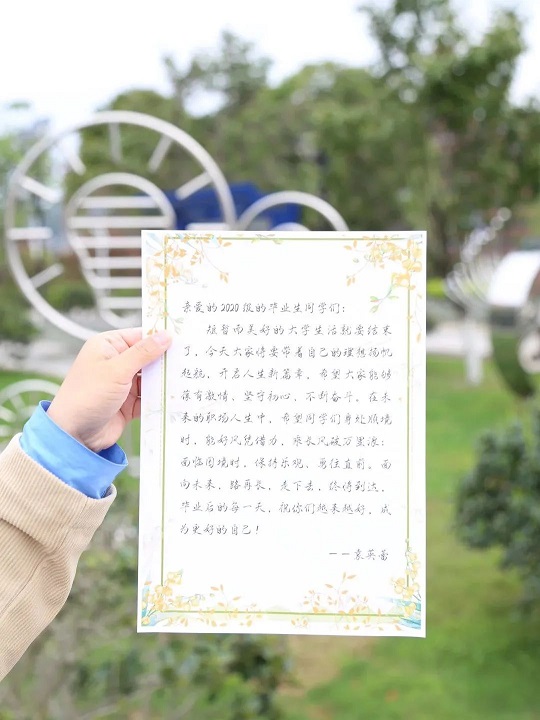 亲爱的2020级的毕业生同学们：
短暂而美好的大学生活就要结束
了，今天大家将要带着自己的理想扬帆
起航，开启人生新篇章。希望大家能够
葆有激情、坚守初心、不断奋斗。在未
来的职场人生中，希望同学们身处顺境
时，能好风凭借力，乘长风破万里浪；
面临困境时，保持乐观、勇往直前。面
向未来，路再长，走下去，终将到达。
毕业后的每一天，祝你们越来越好，成
为更好的自己！
——袁英蕾